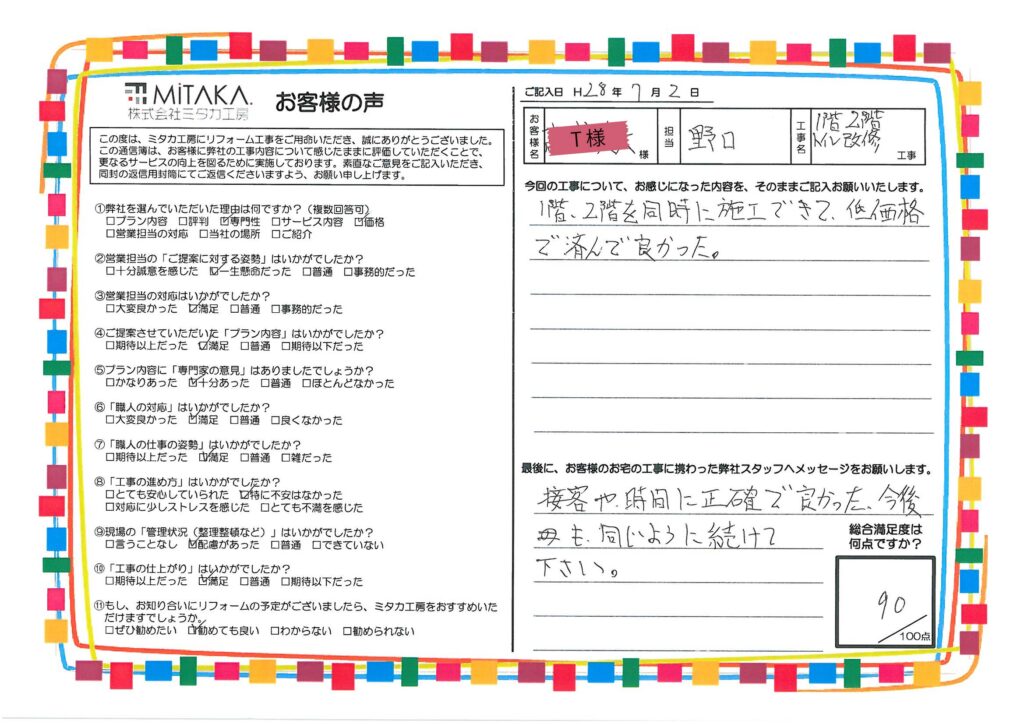 MiTAKA.
株式会社ミタカ工房
お客様の声
この度は、ミタカ工房にリフォーム工事をご用命いただき、誠にありがとうございました。
この通信簿は、お客様に弊社の工事内容について感じたままに評価していただくことで、
更なるサービスの向上を図るために実施しております。素直なご意見をご記入いただき、
同封の返信用封筒にてご返信くださいますよう、お願い申し上げます。
①弊社を選んでいただいた理由は何ですか？（複数回答可）
□プラン内容 □評判 ☑専門性 □サービス内容 ☑価格
□営業担当の対応 □当社の場所 □ご紹介
②営業担当の「ご提案に対する姿勢」はいかがでしたか？
□十分誠意を感じた ☑一生懸命だった □普通 □事務的だった
③営業担当の対応はいかがでしたか？
□大変良かった ☑満足 □普通 □事務的だった
④ご提案させていただいた「プラン内容」はいかがでしたか？
□期待以上だった ☑満足 □普通 □期待以下だった
⑤プラン内容に「専門家の意見」はありましたでしょうか？
□かなりあった ☑十分あった □普通 □ほとんどなかった
⑥「職人の対応」はいかがでしたか？
□大変良かった ☑満足 □普通 □良くなかった
⑦「職人の仕事の姿勢」はいかがでしたか？
□期待以上だった ☑満足 □普通 □雑だった
⑧「工事の進め方」はいかがでしたか？
□とても安心していられた ☑特に不安はなかった
□対応に少しストレスを感じた □とても不満を感じた
⑨現場の「管理状況（整理整頓など）」はいかがでしたか？
□言うことなし ☑配慮があった □普通 □できていない
⑩「工事の仕上がり」はいかがでしたか？
□期待以上だった ☑満足 □普通 □期待以下だった
⑪もし、お知り合いにリフォームの予定がございましたら、ミタカ工房をおすすめいた
だけますでしょうか。
□ぜひ勧めたい ☑勧めても良い □わからない □勧められない
ご記入日 H28年 7月 2日
お客様名 T様 様 担当 野口 工事名 1階2階トイレ改修 工事
今回の工事について、お感じになった内容を、そのままご記入お願いいたします。
1階、2階を同時に施工できて、低価格
で済んで良かった。
最後に、お客様のお宅の工事に携わった弊社スタッフへメッセージをお願いします。
接客や、時間に正確で良かった、今後
も、同じように続けて
下さい。
総合満足度は
何点ですか？
90
100点